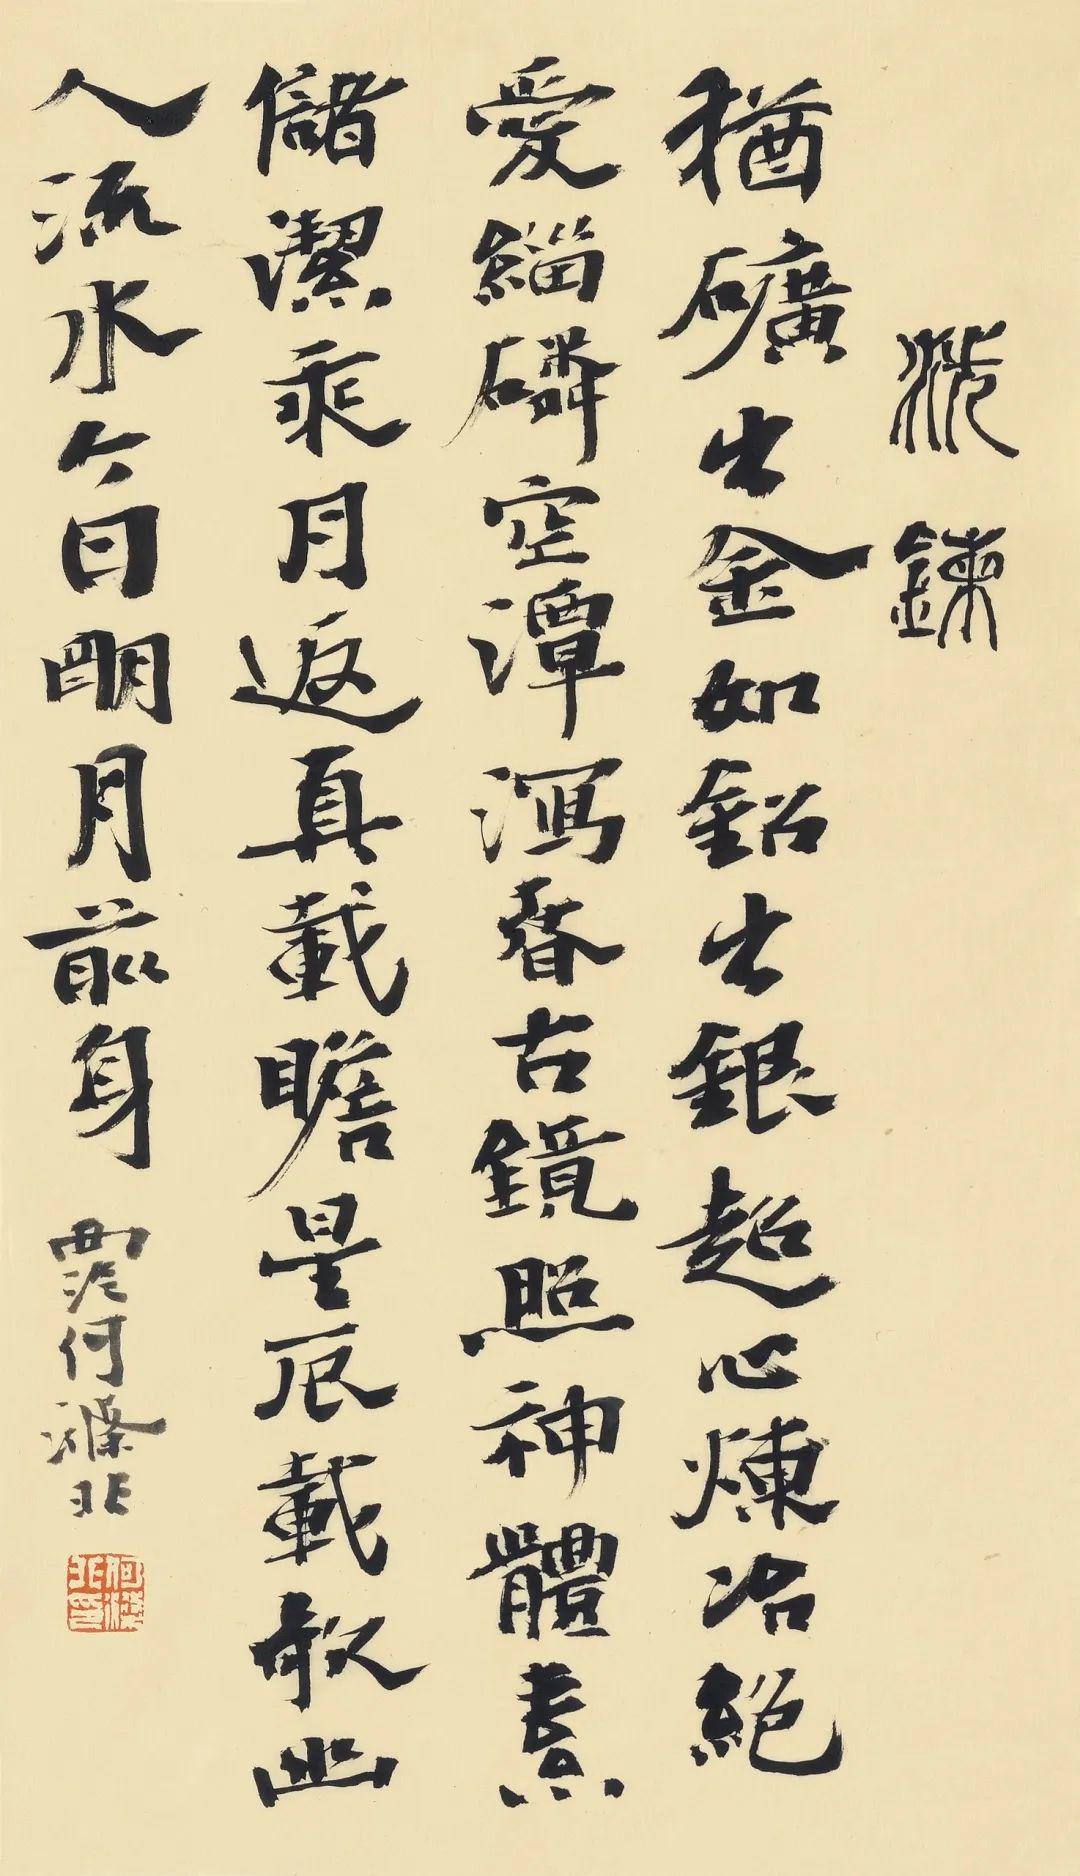 洗鍊
猶礦出金如鉛出銀超心煉冶絕
愛緇磷空潭瀉春古鏡照神體素
儲潔乘月返真載瞻星辰載歌幽
人流水今日明月前身
西泠何滌非
何滌非印